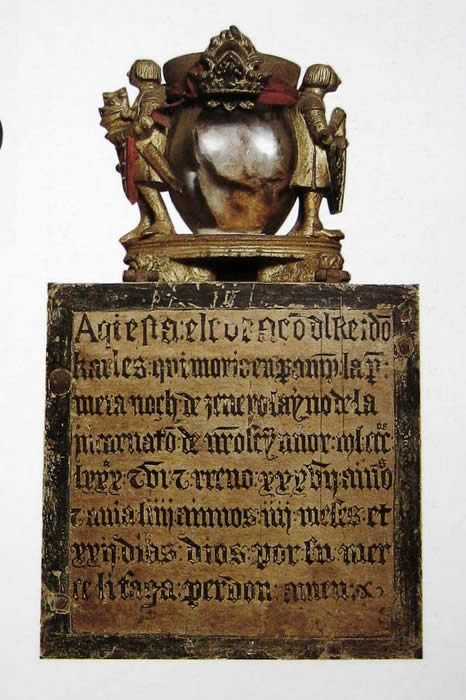 Aqi esta el coraço dl Rei do
karles qui morio en panpᵃ la pⁱ
mera noch de jenero layno de la
incarnato de nro seynor mil ccc
lxxx ⁊ vi ⁊ rreno xxxvii aino
⁊ auia liiii ainnos iiii meses et
xxii dias dios por su mer
ce li faga perdon amen